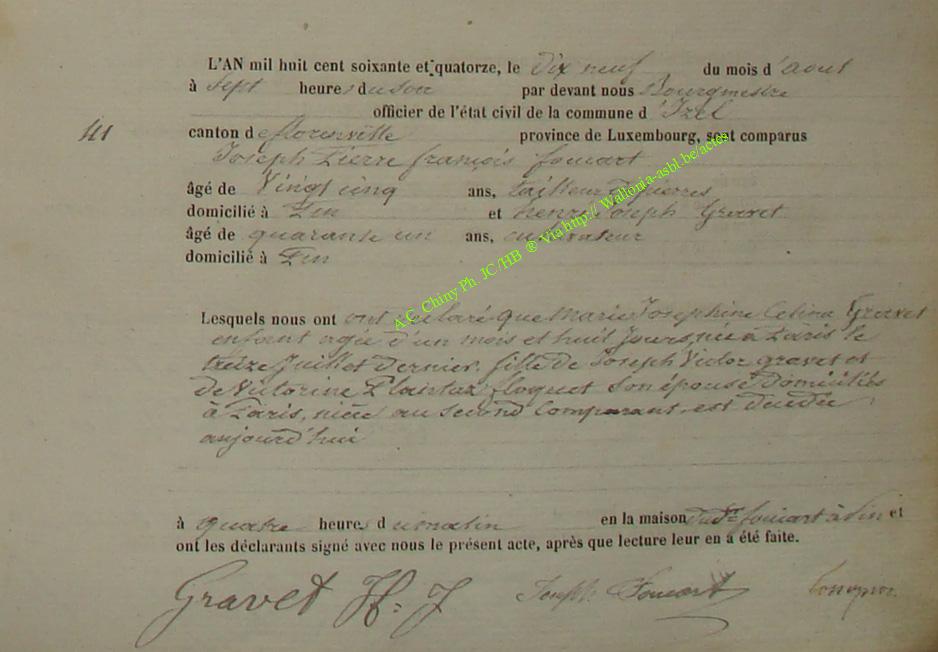 L'AN mil huit cent soixante et quatorze, le dix neuf du mois d'aout
à sept heures du soir par devant nous Bourgmestre
officier de l'état civil de la commune d'Izel
41 canton de florenville province de Luxembourg, sont comparus
Joseph Pierre françois foucart
âgé de Vingt cinq ans, tailleur de pierres
domicilié à Pin et henri Joseph Gravet
âgé de quarante un ans, cultivateur
domicilié à Pin
A.C. Chiny Ph. JC/HB ® Via http:// Wallonia-asbl.be/actes
Lesquels nous ont ont déclaré que Marie Josephine Celina Gravet
enfant agée d'un mois et huit jours, née à Paris le
treize Juillet dernier, fille de Joseph Victor gravet et
de Victorine floquet son épouse domiciliés
à Paris, nièce au second Comparant, est décédée
aujourd'hui
à quatre heures du matin en la maison dudt foucart à Pin et
ont les déclarants signé avec nous le présent acte, après que lecture leur en a été faite.
Gravet H. J Joseph Foucart